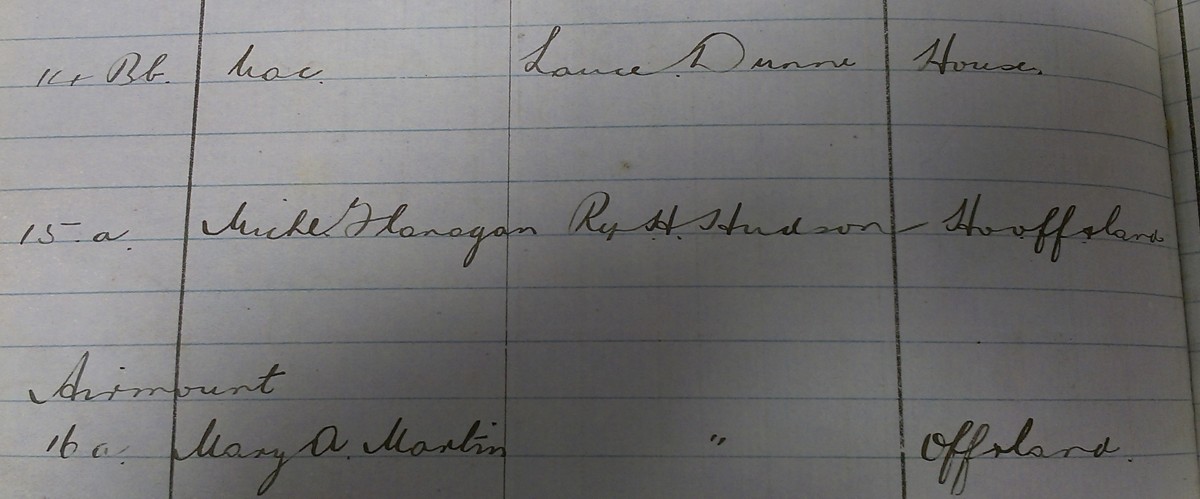 14 Bb. Vac. Lauce. Dunne House.
15 a. Michl Flanagan Rps H. Hudson Ho off & land
Airmount
16 a. Mary A. Martin " Off & land.